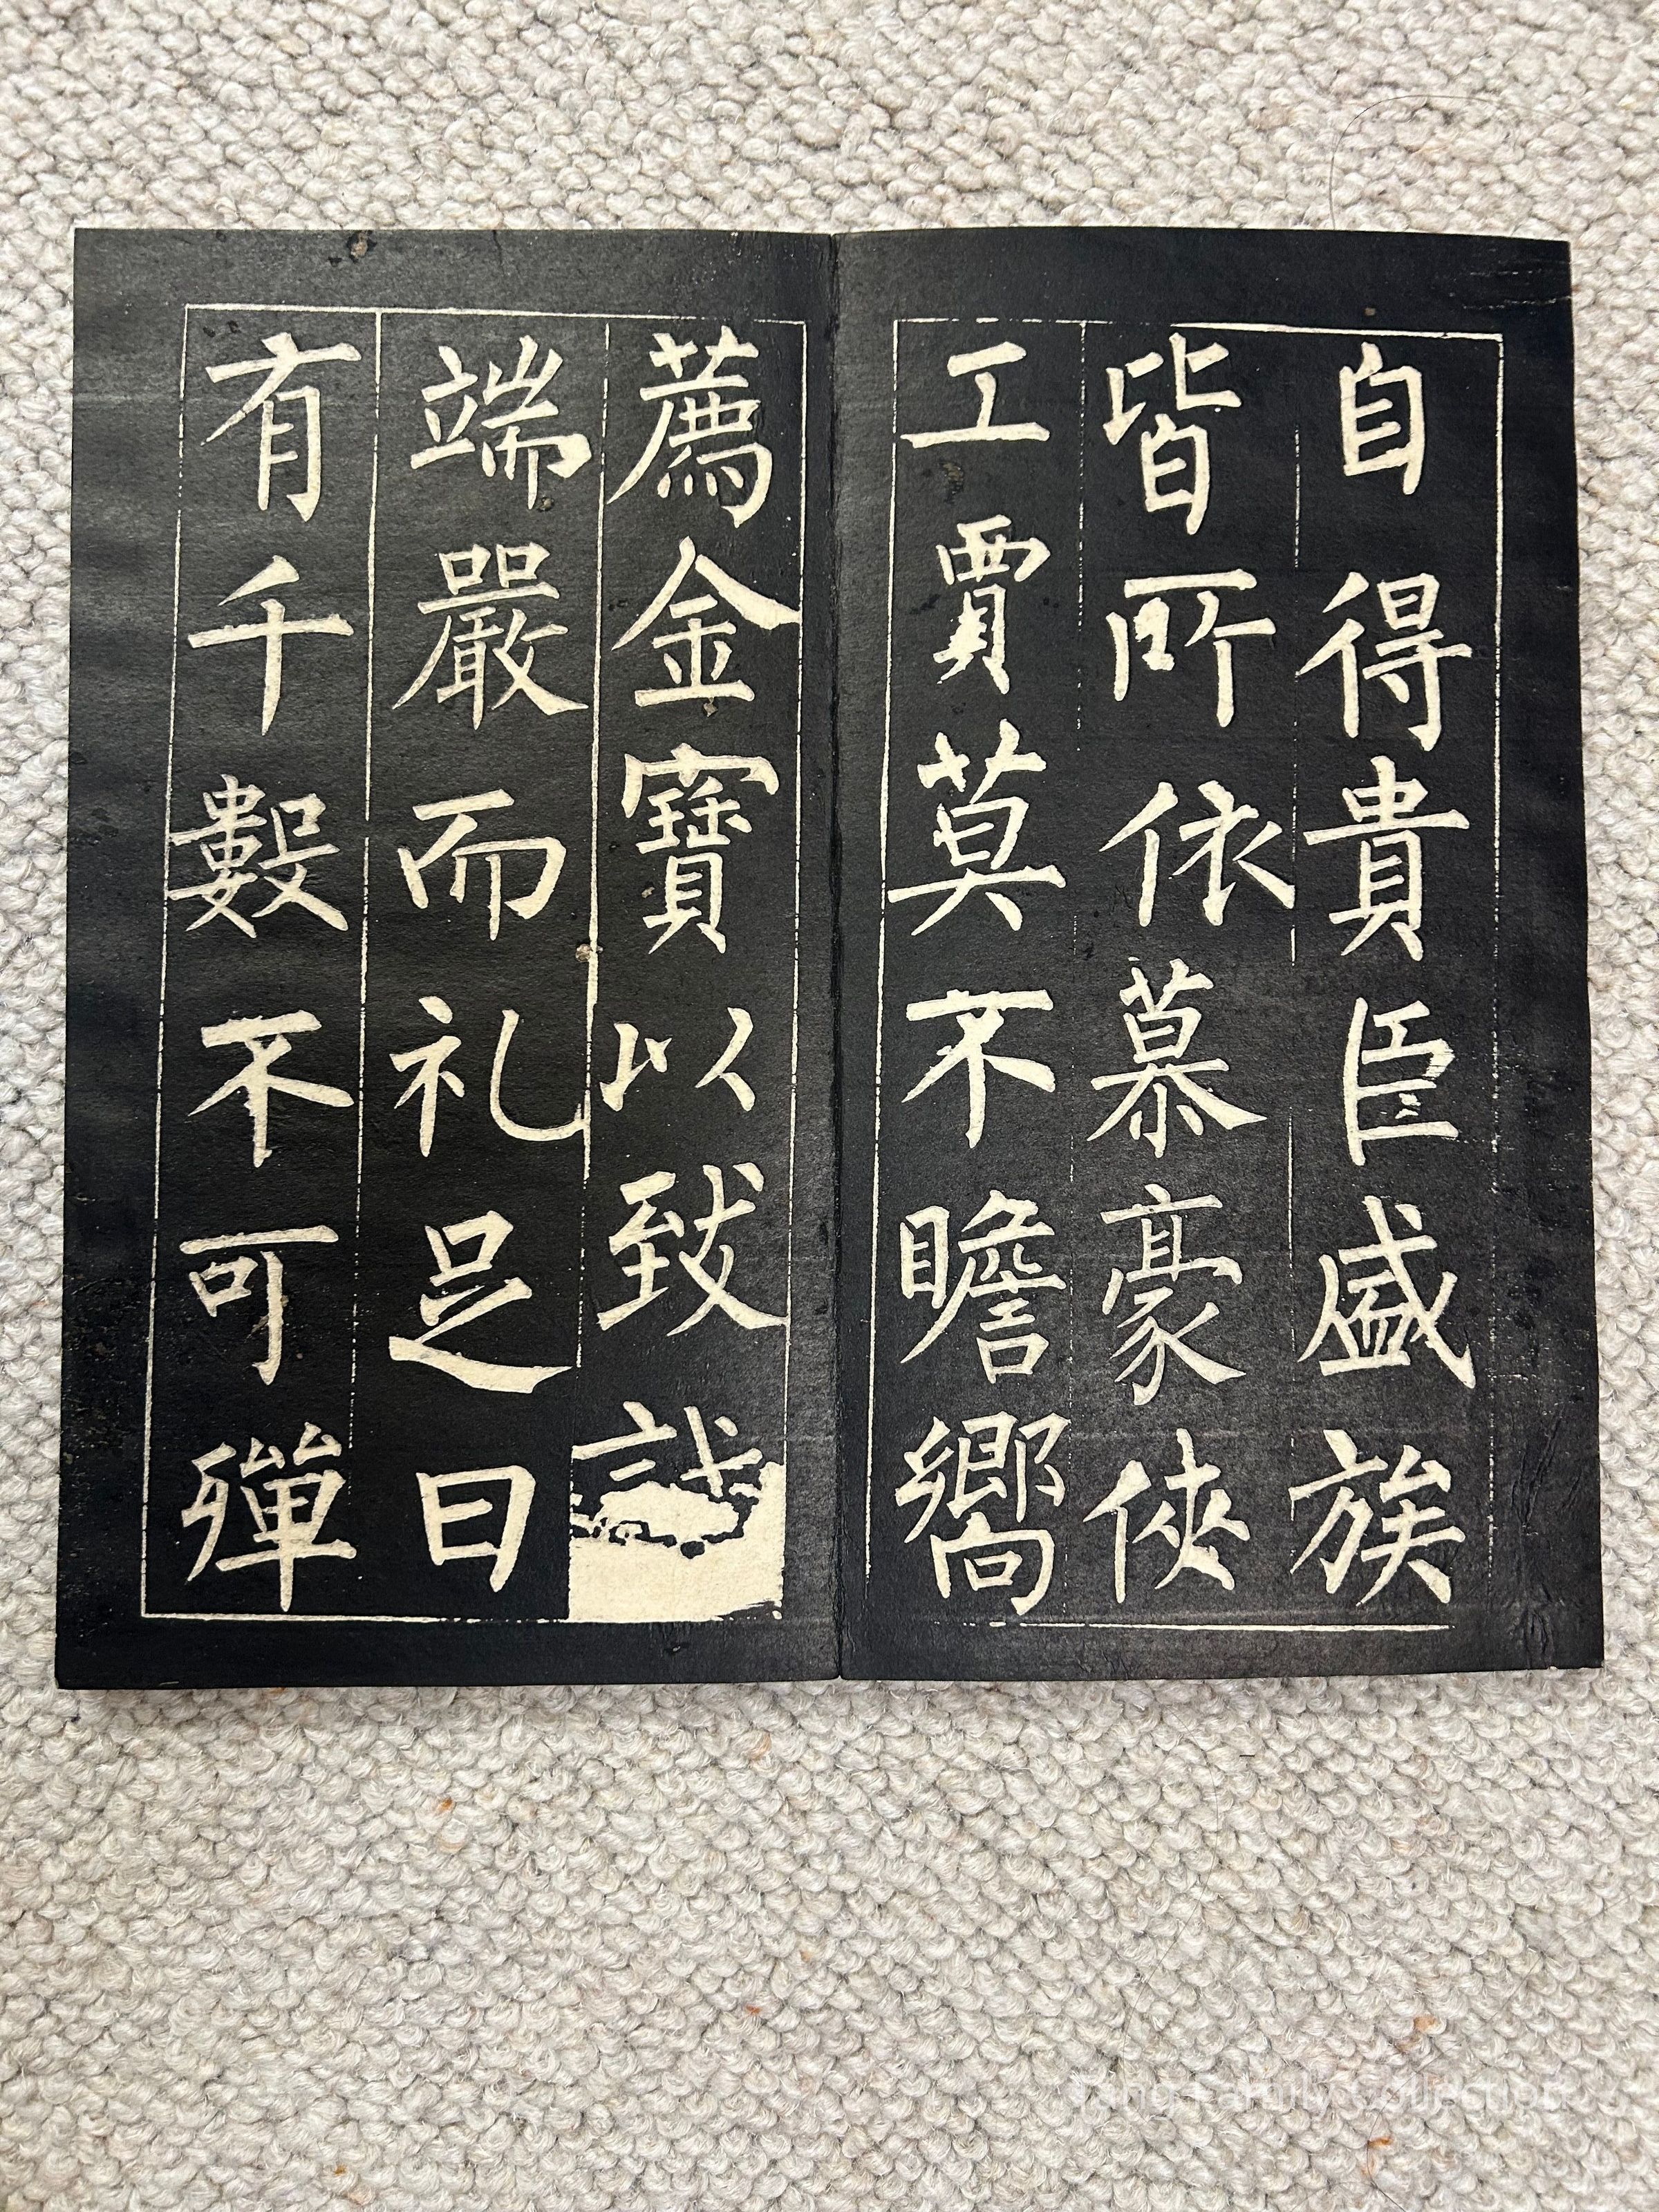 自得貴臣盛族
皆所依慕豪俠
工賈莫不瞻嚮
薦金寶以致誠
端嚴而礼足日
有千數不可殫
Tang Family Collection